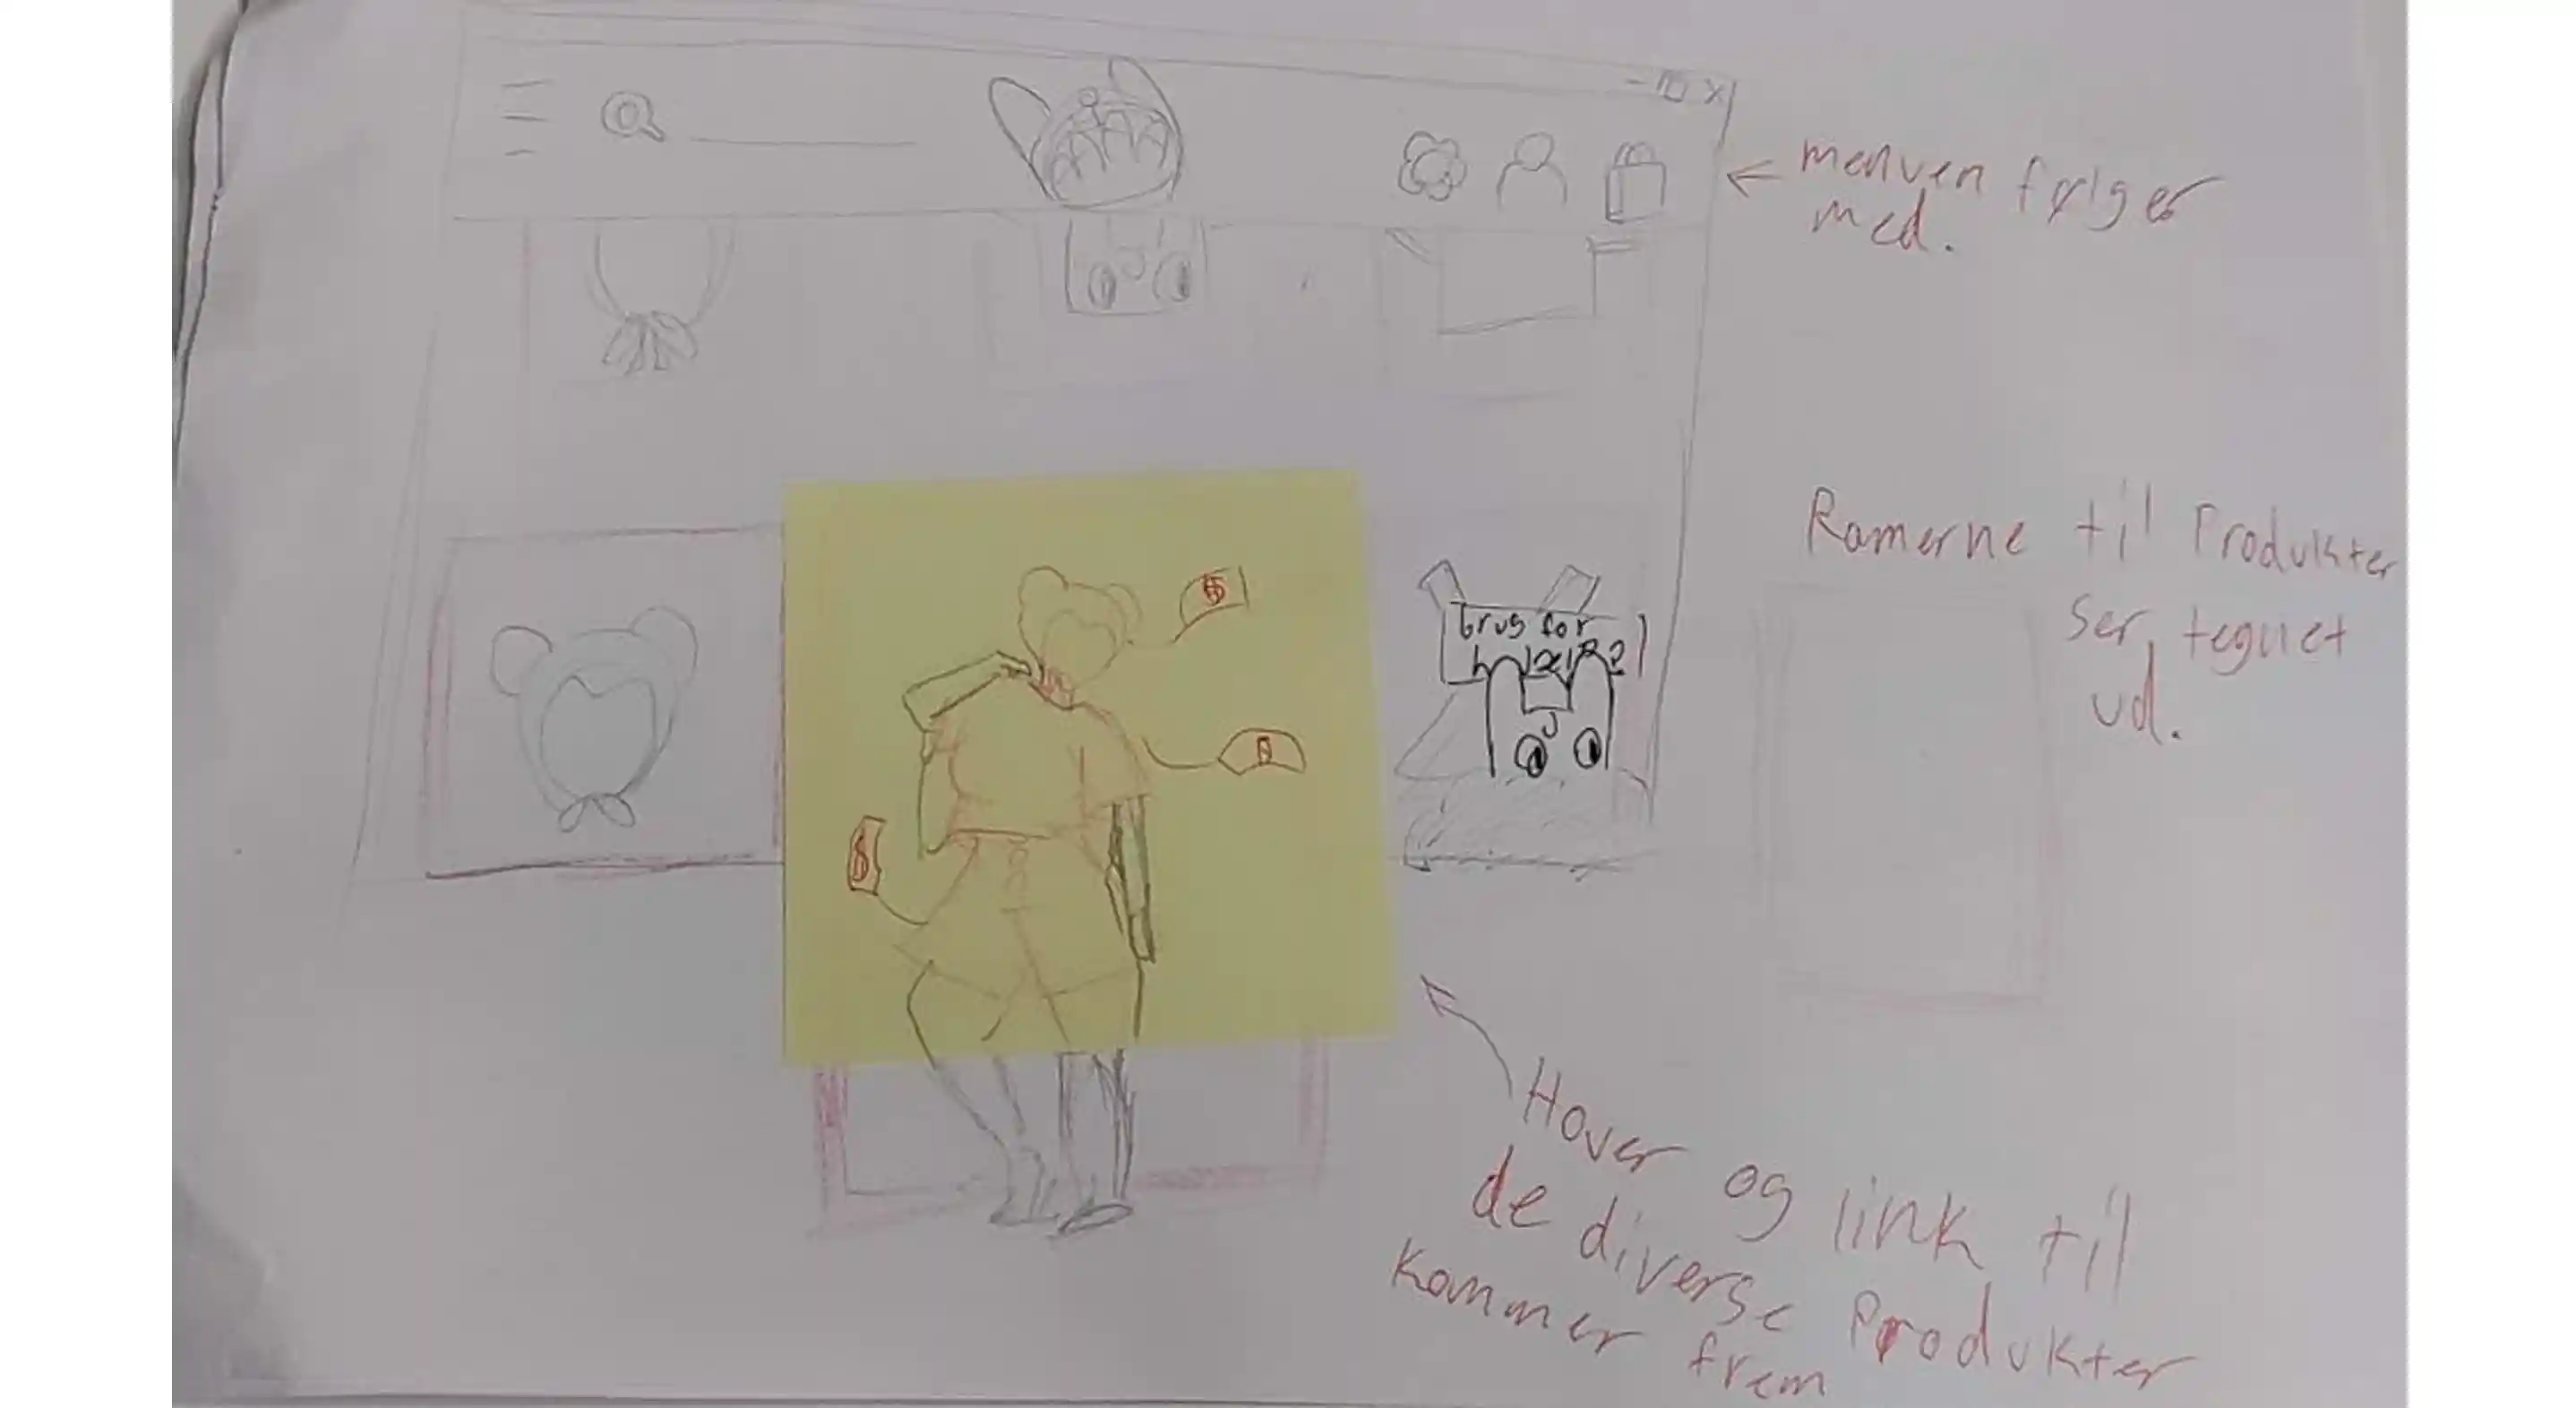 menuen følger
med.
Ramerne til Produkter
ser tegnet
ud.
brug for
hjælp?
$
$
Hover og link til
de diverse Produkter
kommer frem